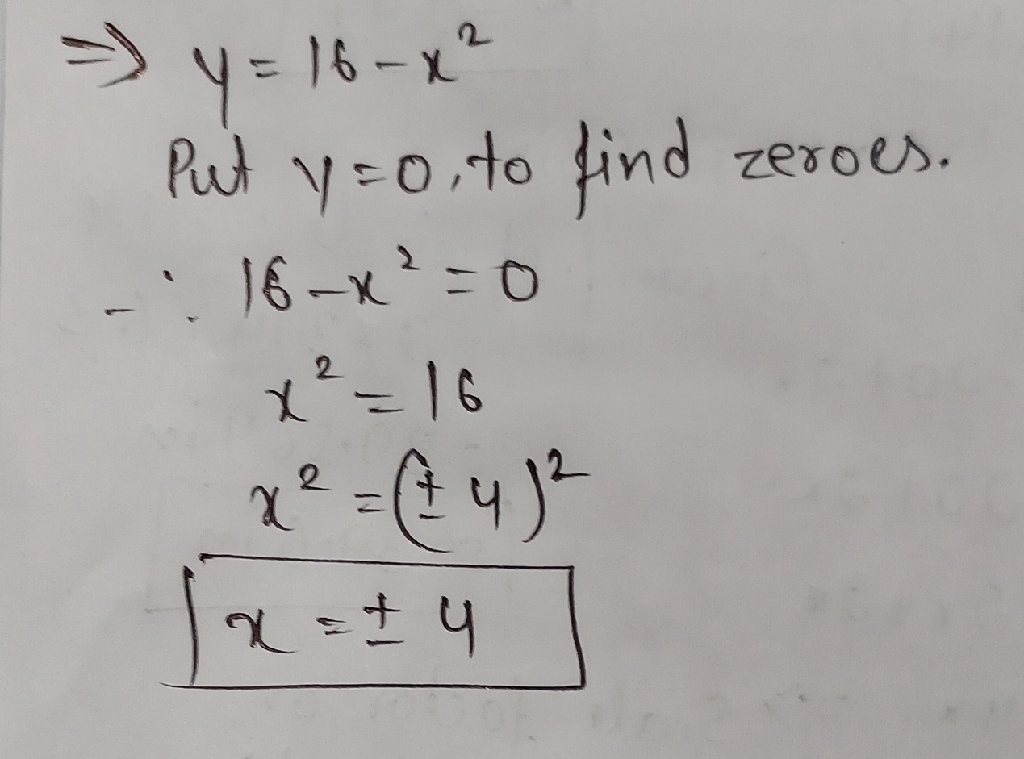 ⇒ y = 16 - x²
Put y = 0, to find zeroes.
∴ 16 - x² = 0
x² = 16
x² = (± 4)²
x = ± 4